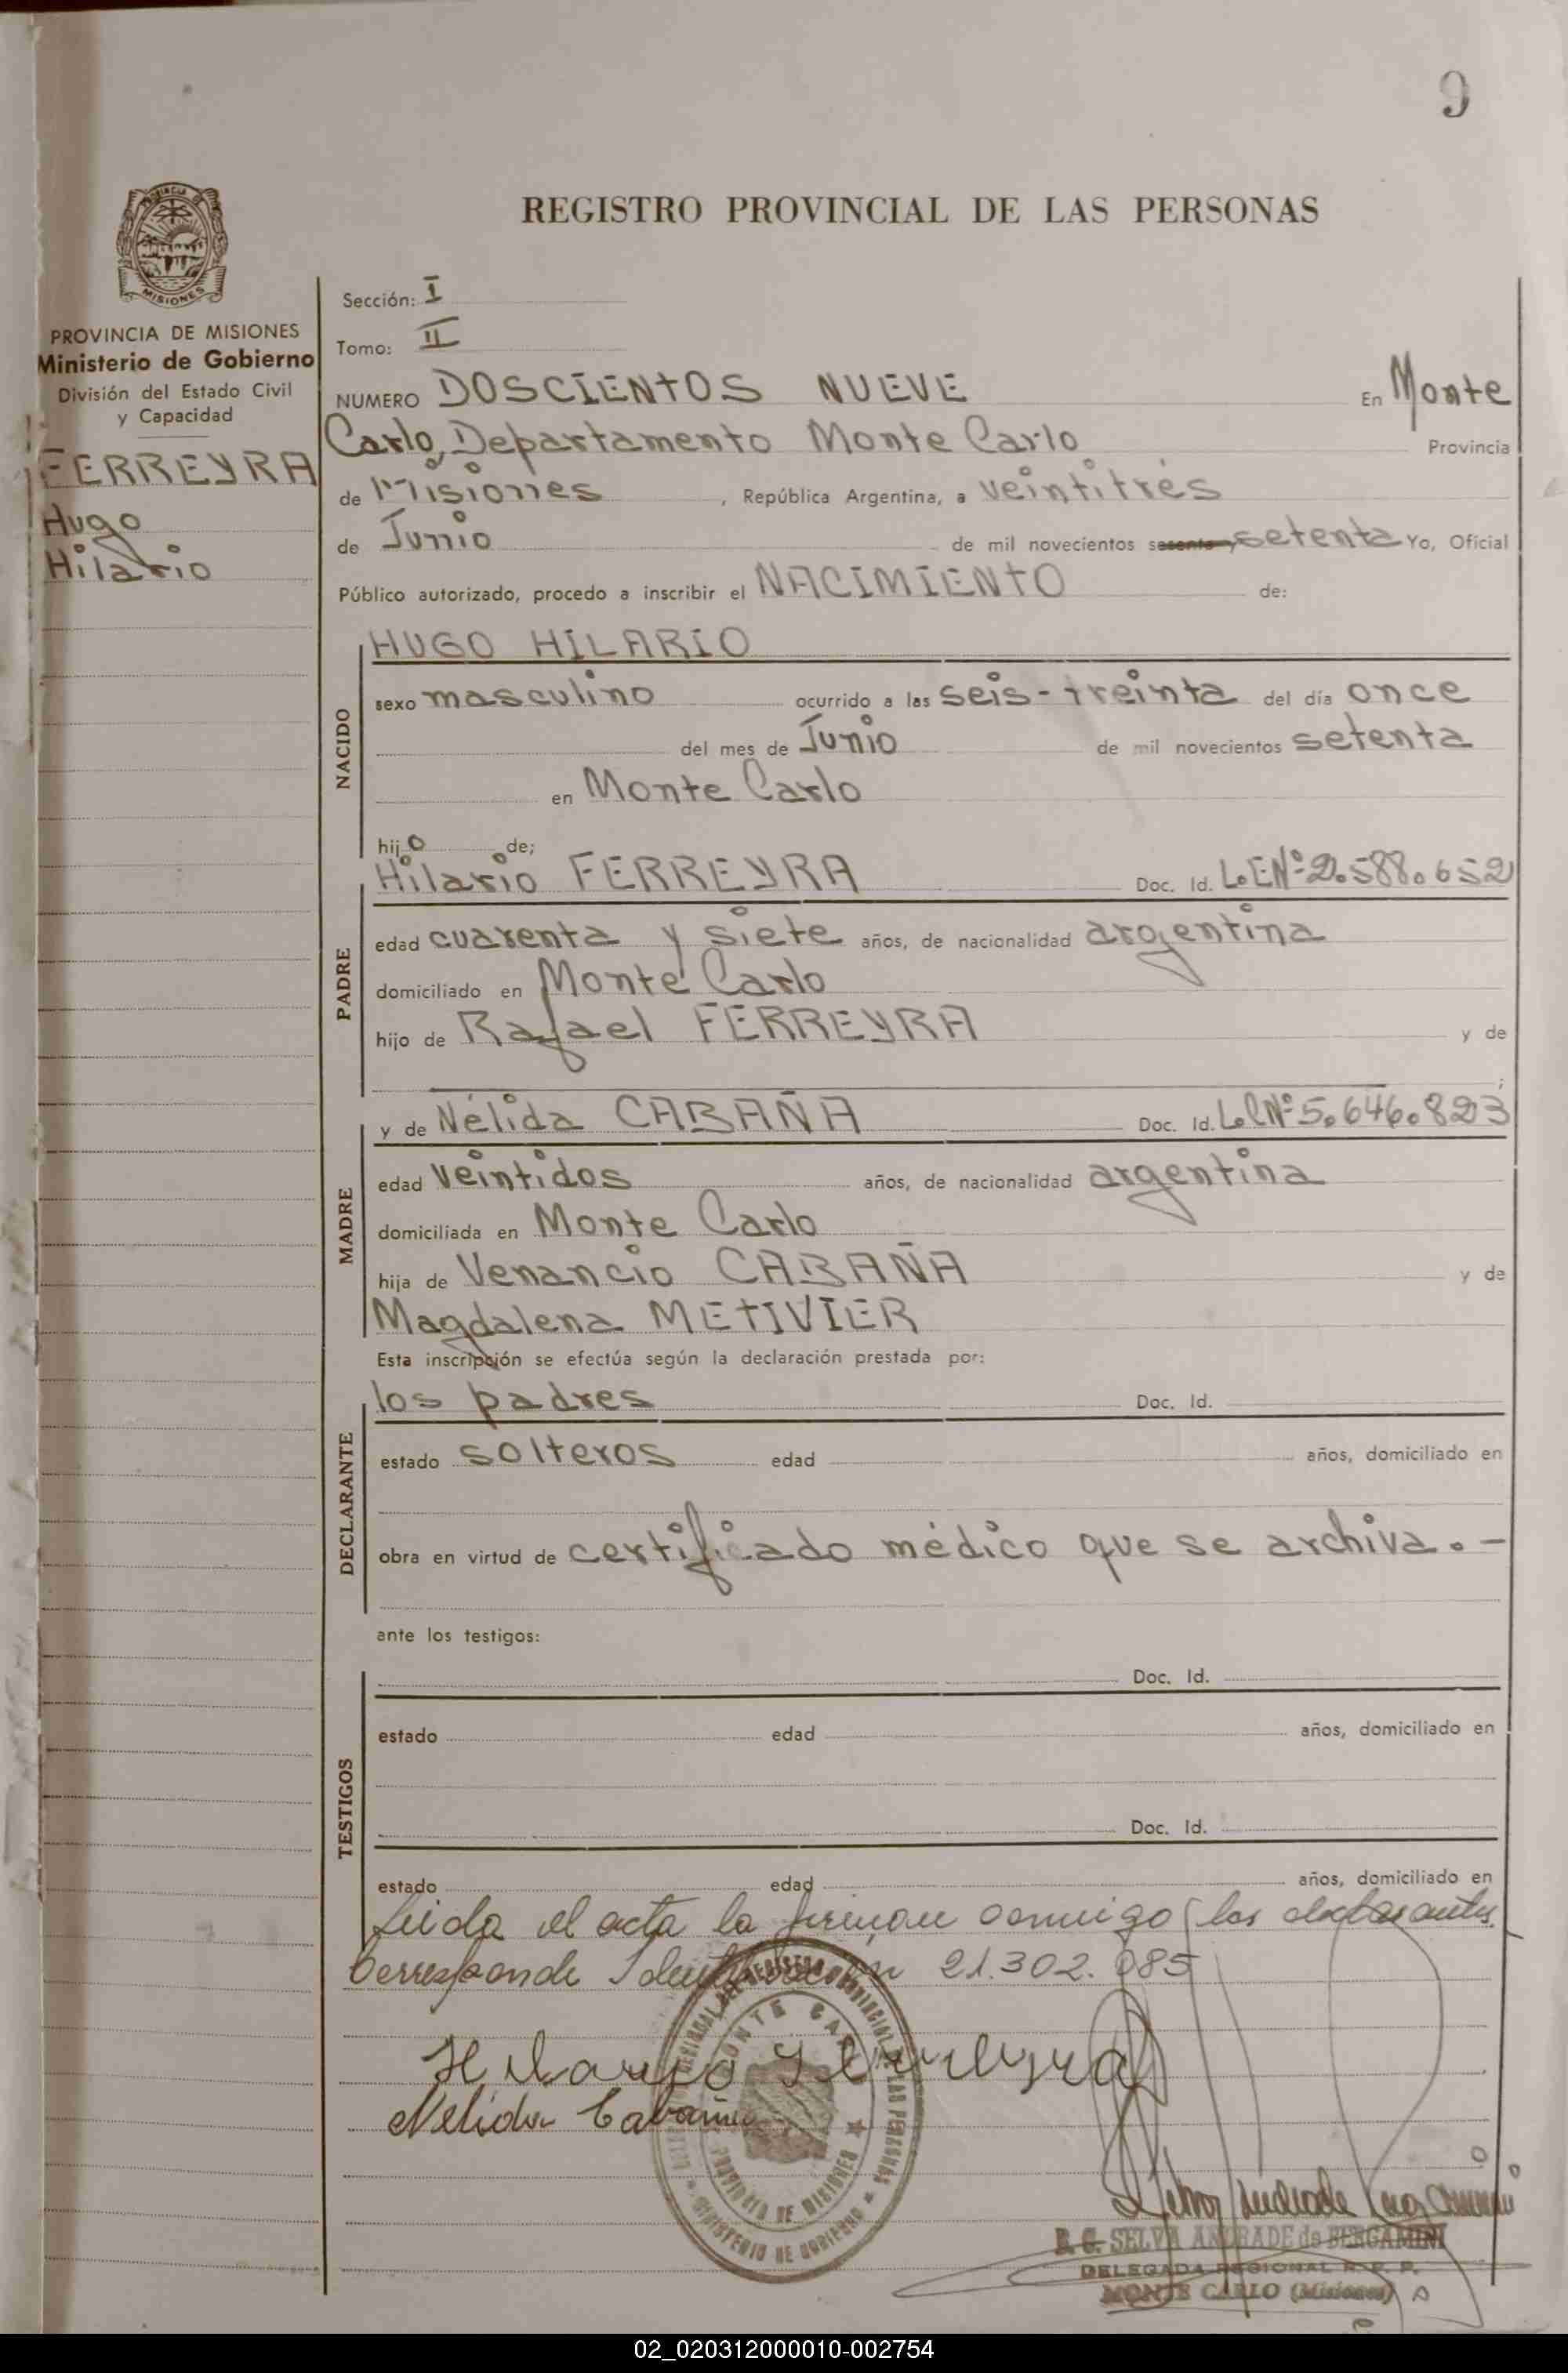 9
REGISTRO PROVINCIAL DE LAS PERSONAS
PROVINCIA
MISIONES
PROVINCIA DE MISIONES
Ministerio de Gobierno
División del Estado Civil
y Capacidad
FERREYRA
Hugo
Hilario
Sección: I
Tomo: II
NUMERO DOSCIENTOS NUEVE En Monte
Carlo, Departamento Monte Carlo Provincia
de Misiones, República Argentina, a veintitrés
de Junio de mil novecientos sesenta y setenta Yo, Oficial
Público autorizado, procedo a inscribir el NACIMIENTO de:
NACIDO
HUGO HILARIO
sexo masculino ocurrido a las seis-treinta del día once
del mes de Junio de mil novecientos setenta
en Monte Carlo
hijo de;
PADRE
Hilario FERREYRA Doc. Id. L.E.Nº 2.588.652
edad cuarenta y siete años, de nacionalidad argentina
domiciliado en Monte Carlo
hijo de Rafael FERREYRA y de
;
MADRE
y de Nélida CABAÑA Doc. Id. L.C.Nº 5.646.823
edad veintidos años, de nacionalidad argentina
domiciliada en Monte Carlo
hija de Venancio CABAÑA y de
Magdalena METIVIER
Esta inscripción se efectúa según la declaración prestada por:
DECLARANTE
los padres Doc. Id.
estado solteros edad años, domiciliado en
obra en virtud de certificado médico que se archiva.-
ante los testigos:
TESTIGOS
Doc. Id.
estado edad años, domiciliado en
Doc. Id.
estado edad años, domiciliado en
Leida el acta la firman conmigo los declarantes
Corresponde Identificación 21.302.085
Hilario Ferreyra
Nelida Cabaña
MONTE CARLO
PROVINCIA DE MISIONES
MINISTERIO DE GOBIERNO
R. G. SELVA ANDRADE de BERGAMINI
DELEGADA REGIONAL R. P. P.
MONTE CARLO (Misiones)
02_020312000010-002754